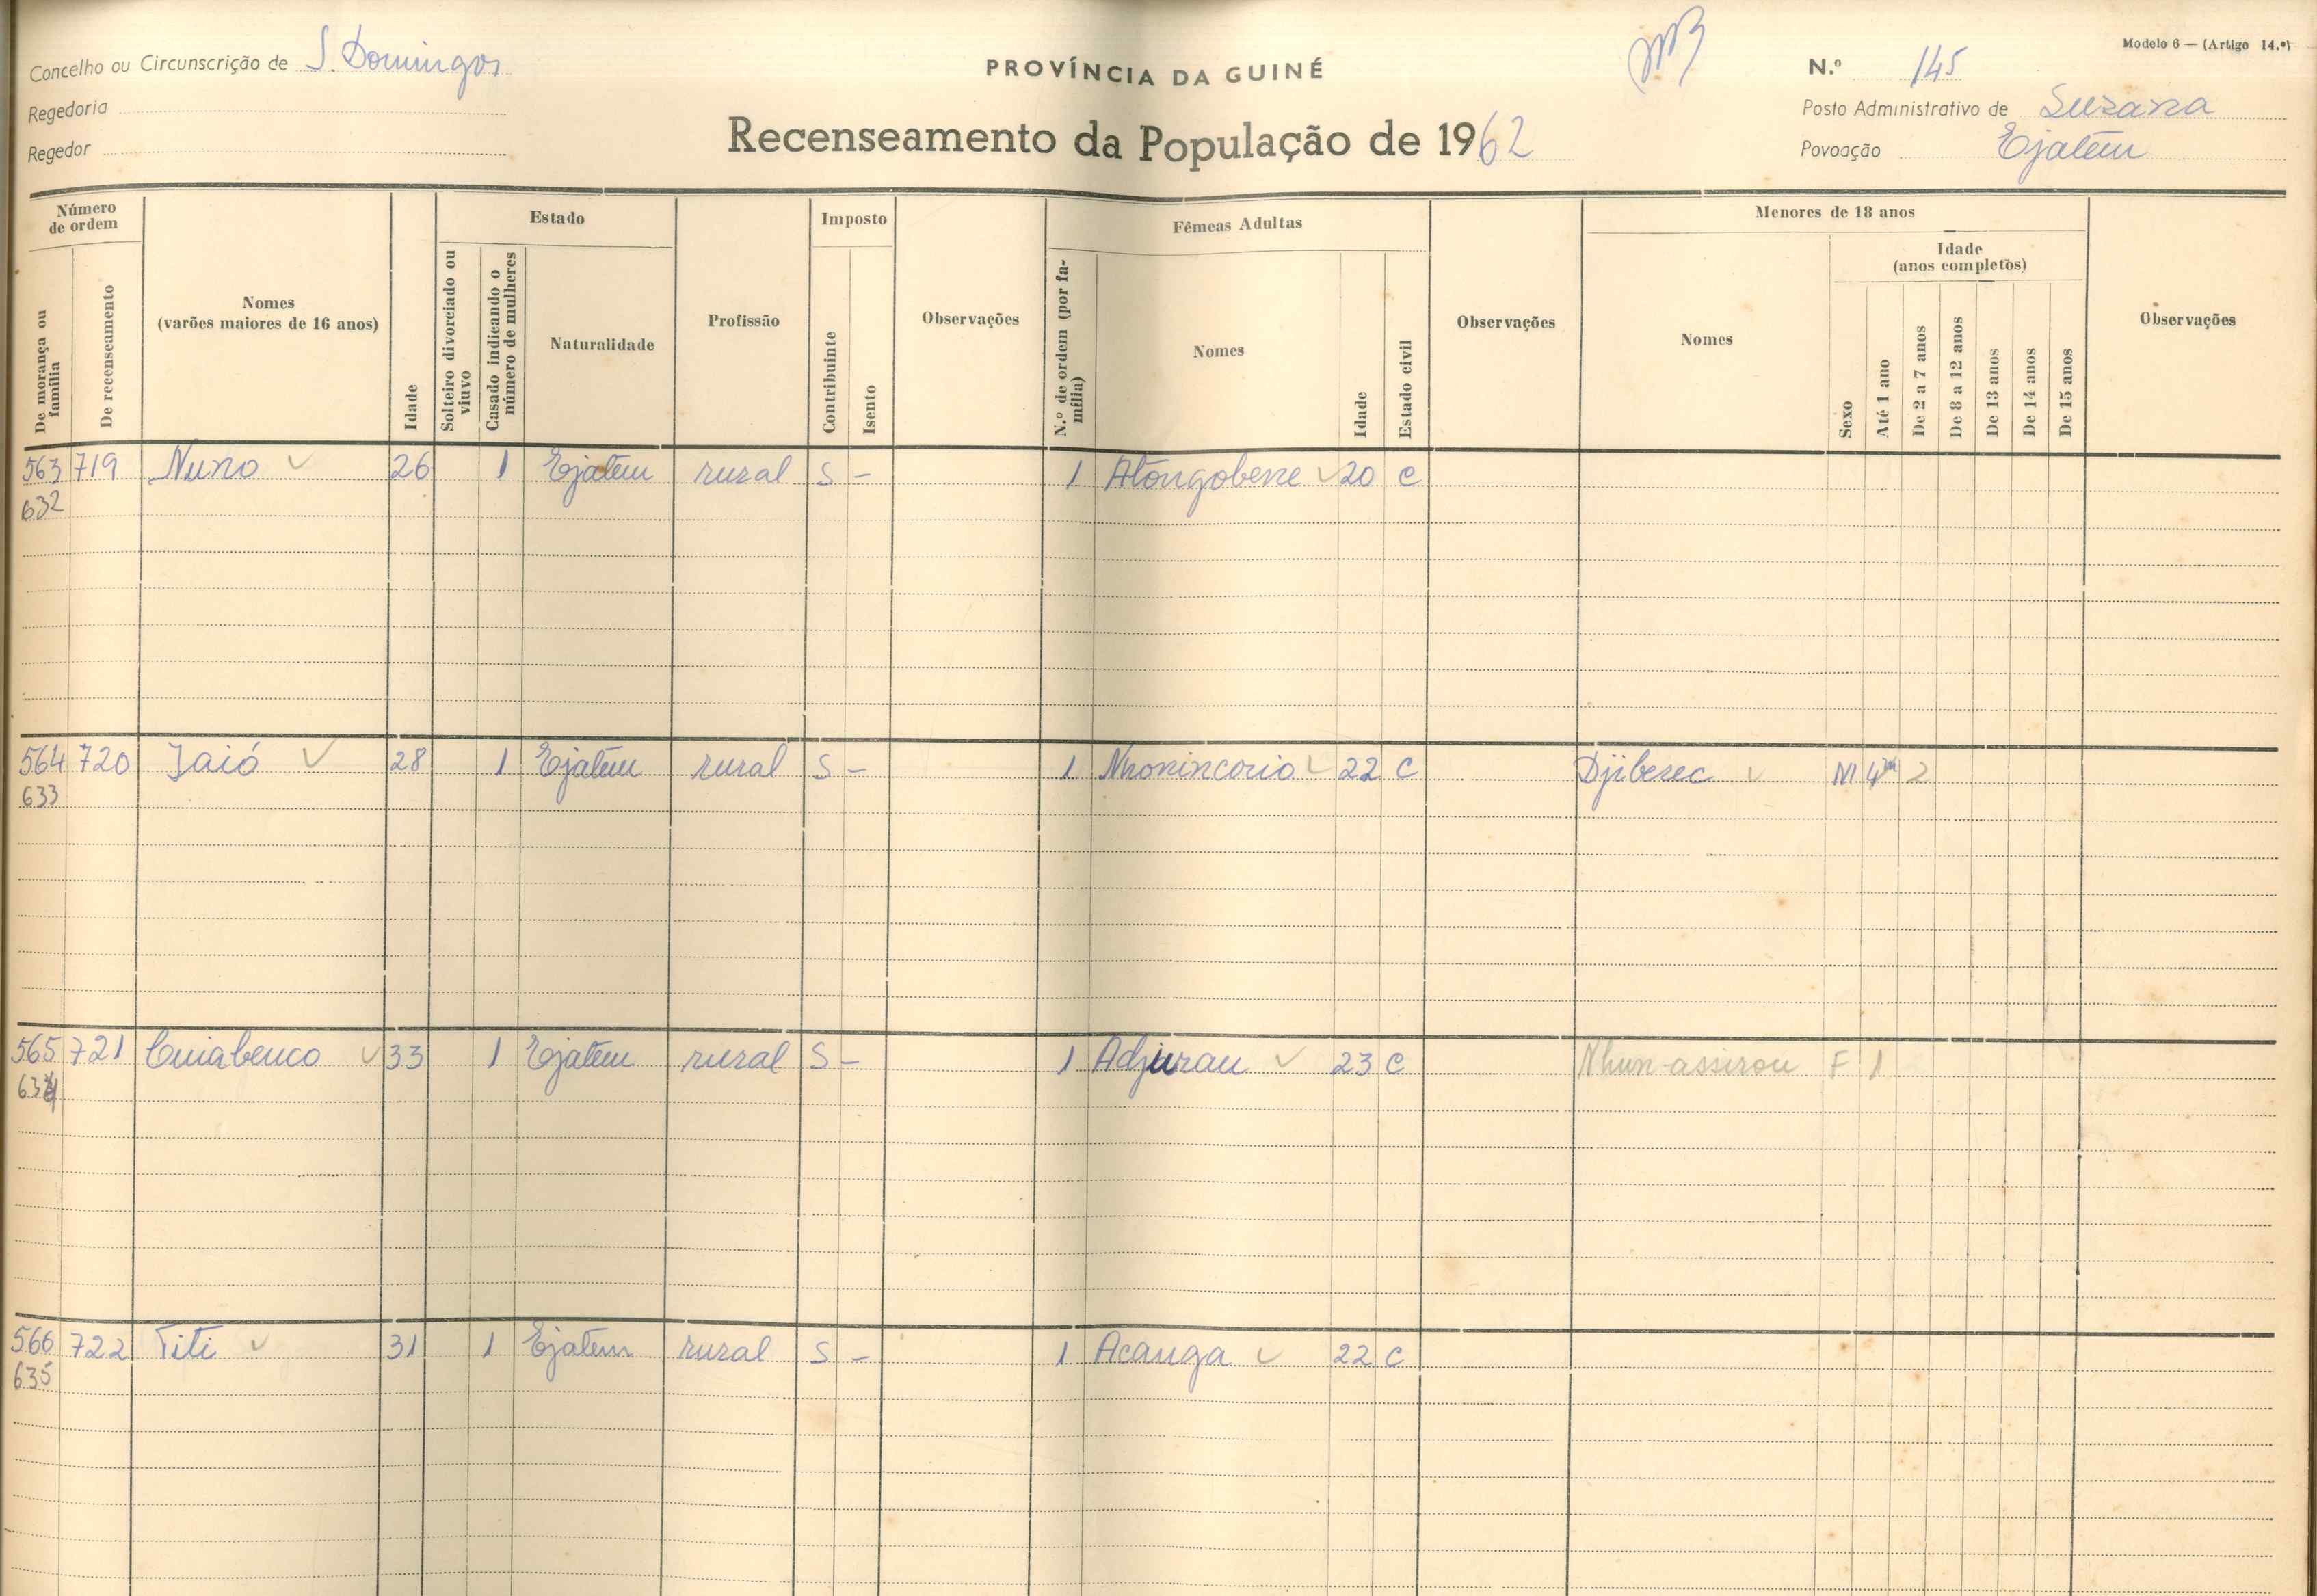 Modelo 6 — (Artigo 14.º)
Concelho ou Circunscrição de S. Domingos
PROVÍNCIA DA GUINÉ
N.º 145
Regedoria
Posto Administrativo de Suzana
Regedor
Recenseamento da População de 1962
Povoação Ejatem
Número de ordem
De morança ou família
De recenseamento
Nomes
(varões maiores de 16 anos)
Idade
Estado
Solteiro divorciado ou viuvo
Casado indicando o número de mulheres
Naturalidade
Profissão
Imposto
Contribuinte
Isento
Observações
Fêmeas Adultas
N.º de ordem (por família)
Nomes
Idade
Estado civil
Observações
Menores de 18 anos
Nomes
Sexo
Idade
(anos completos)
Até 1 ano
De 2 a 7 anos
De 8 a 12 anos
De 13 anos
De 14 anos
De 15 anos
Observações
563 719 Nuno 26 1 Ejatem rural S - 1 Atongobene 20 C
632
564 720 Jaió 28 1 Ejatem rural S - 1 Nhonincorio 22 C Djiberec M 4m 2
633
565 721 Cuiabenco 33 1 Ejatem rural S - 1 Adjurau 23 C Nhun-assirou F 1
634
566 722 Titi 31 1 Ejatem rural S - 1 Acanga 22 C
635